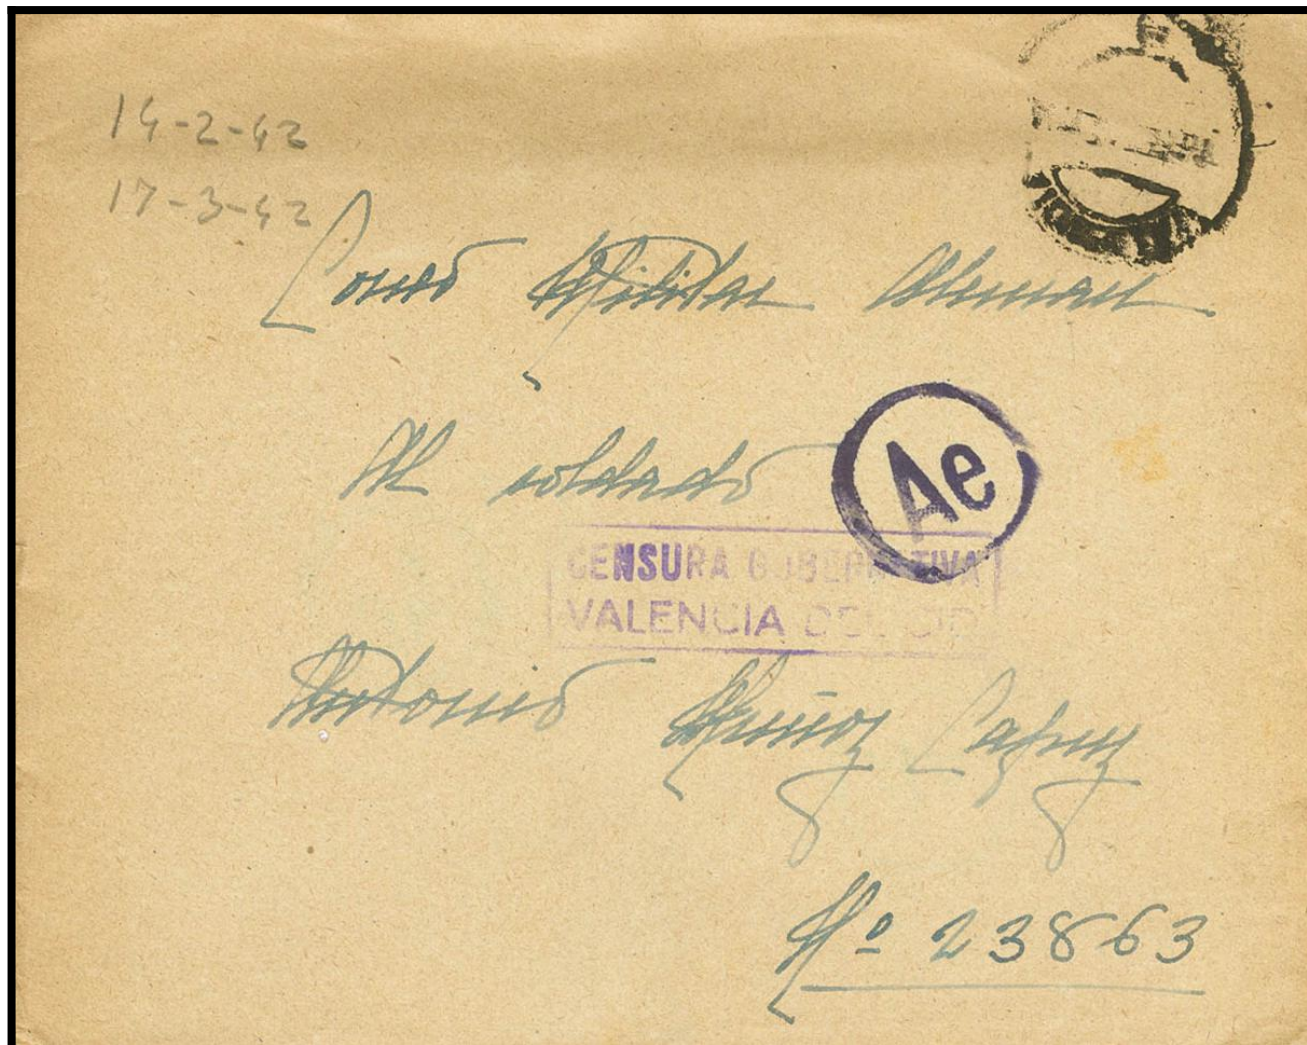 14-2-42
17-3-42
Correo Militar Aleman
Al soldado
Ae
CENSURA GUBERNATIVA
VALENCIA DEL CID
Antonio Muñoz
Nº 23863